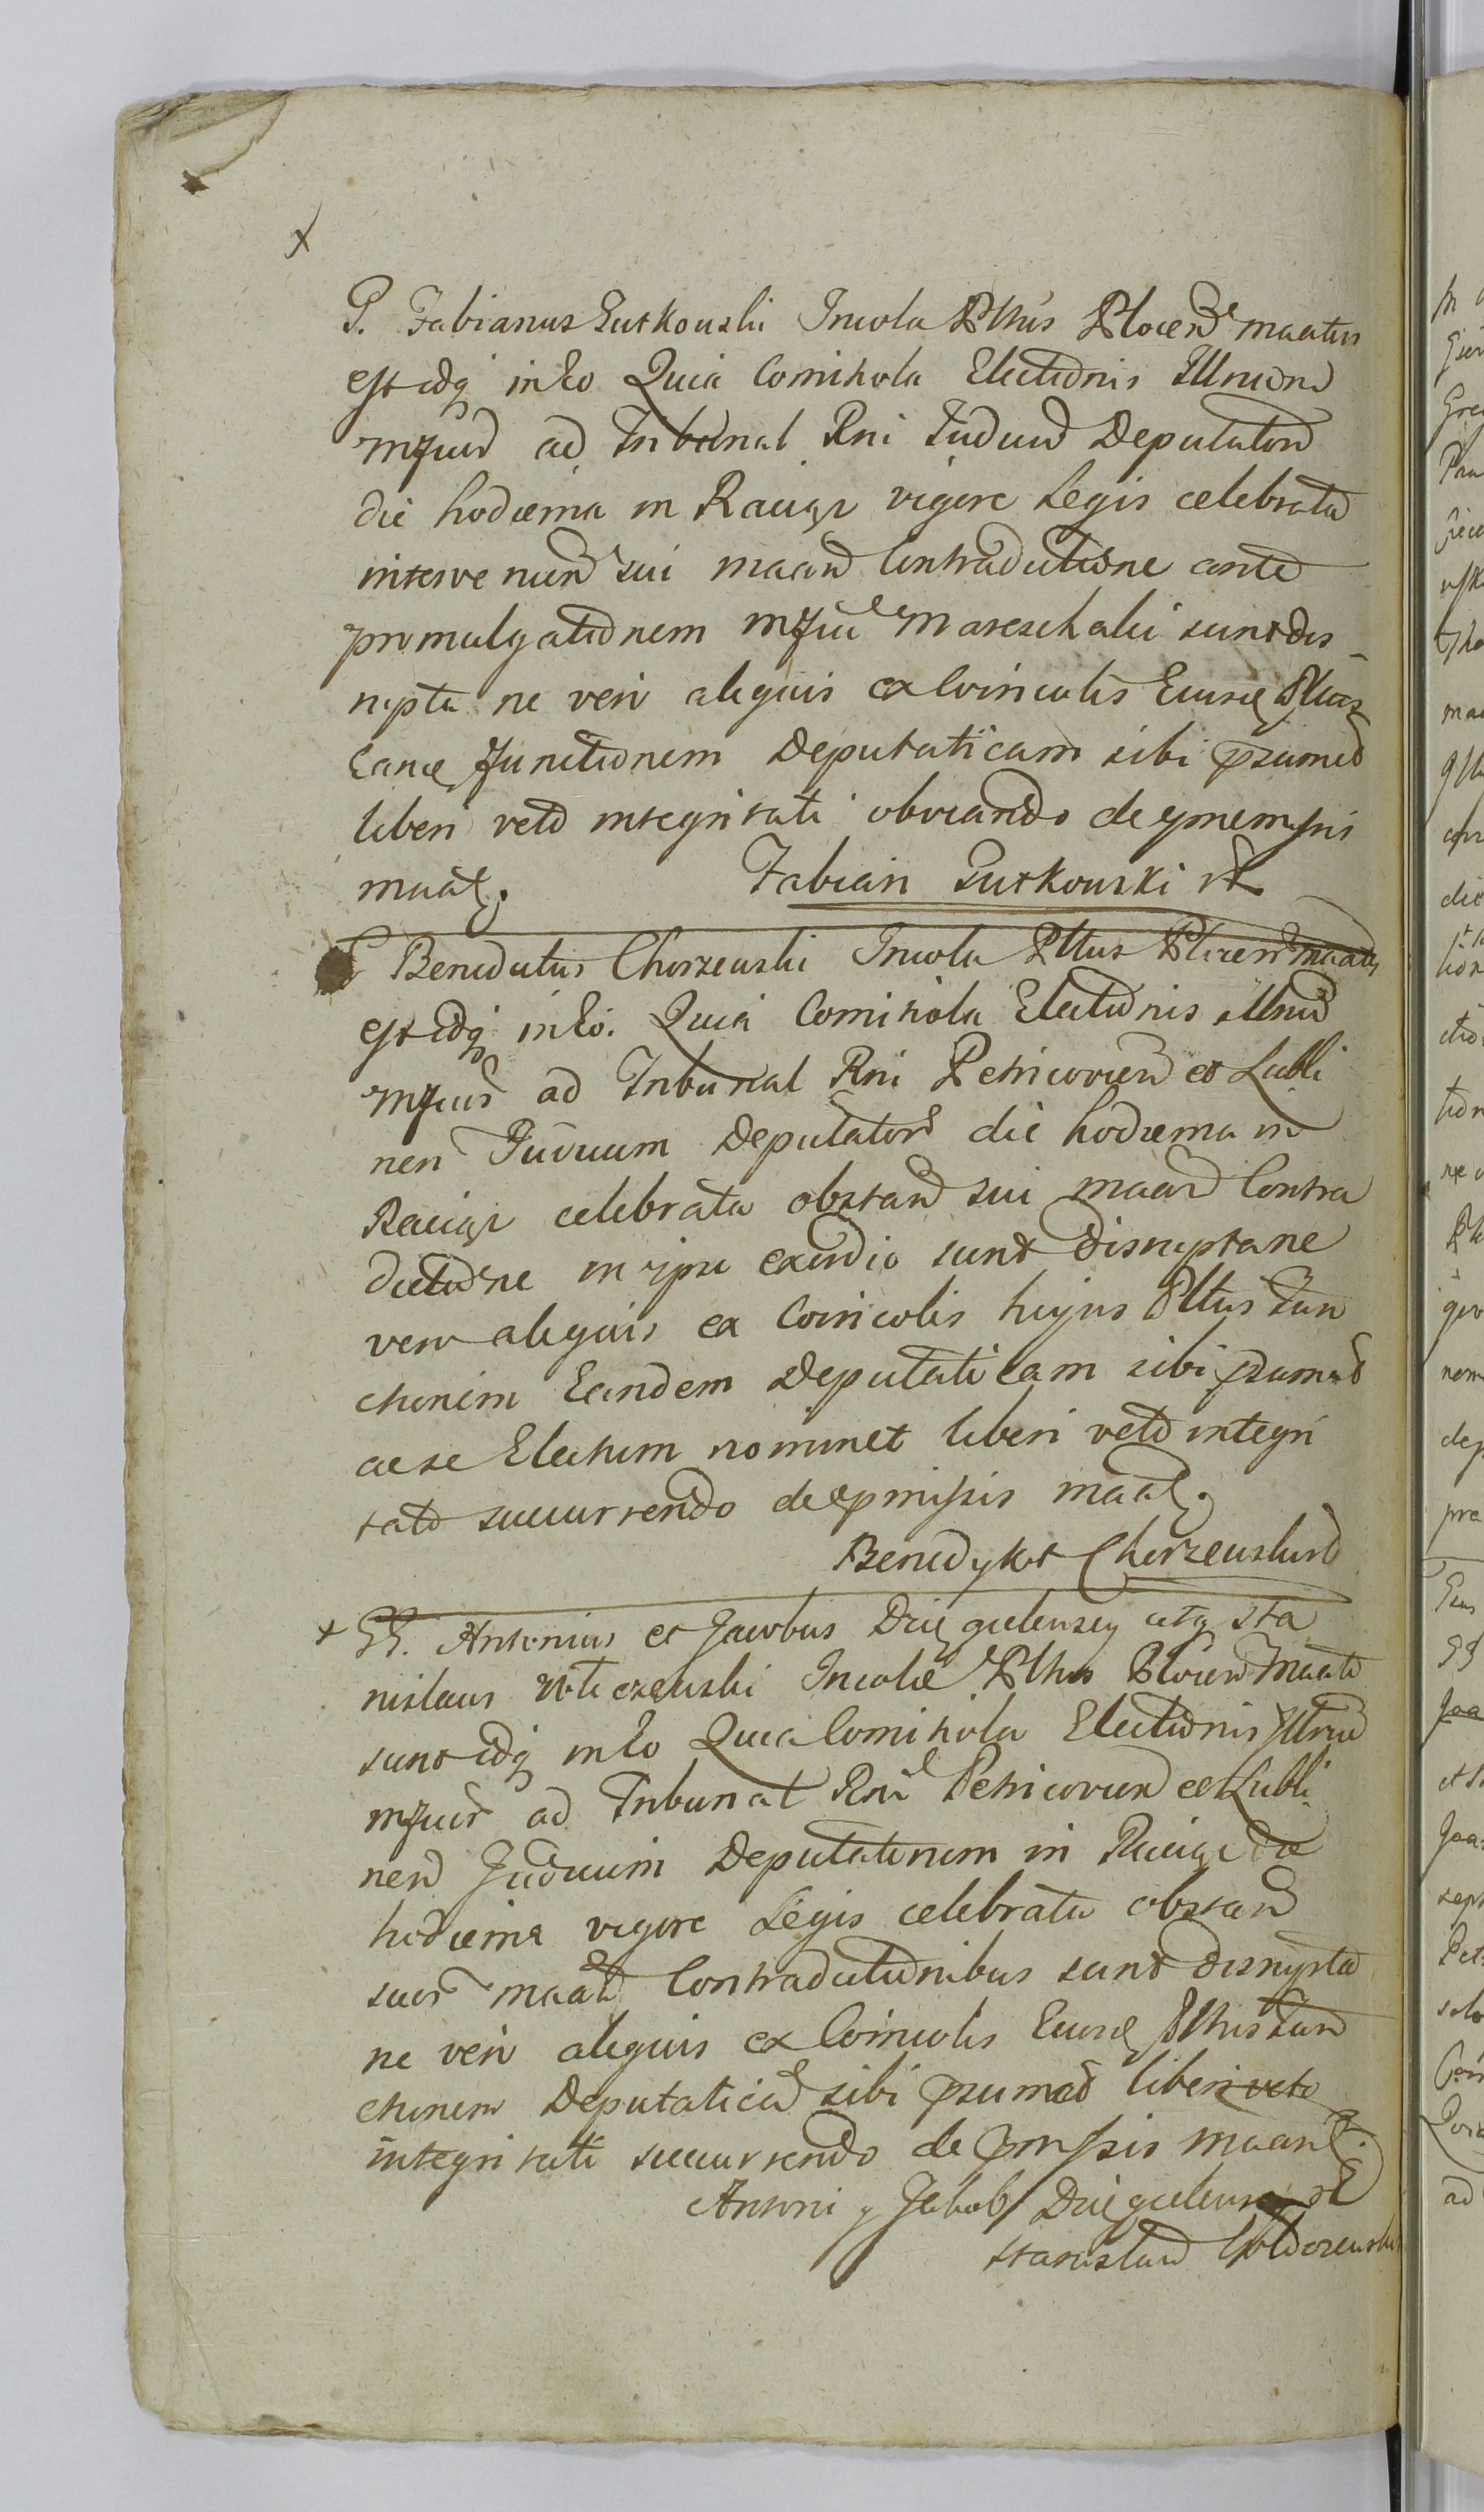 G. Fabianus Sutkouski Incola Plltus Plocen maatus
est idq in Eo Quia Comitiola Electionis Illrium
mfcum ad Tribunal Rni Judicum Deputatoru
die hodierna in Raciąz vigore Legis celebrata
interveniend sui maand Contradictione ante
promulgationem mfci Mareschalci sunt dis
rupta ne vero aliquis ex Coincolis Eiusd Plltus
Eande functionem Deputaticam sibi psumed
liberi veto integritati obviando de pmemissis
maatq. Fabian Sutkouski
G Benedictus Chorzeuski Incola Plltus Plocen maatus
est idq in Eo. Quia Comitiola Electionis illrium
mfcur ad Tribunal Rni Petricovien et Lubli
nen Judicum Deputator die hodierna in
Raciąz celebrata obstand sui maand Contra
dictione in ipso exordio sunt disrupta ne
vero aliquis ex Coincolis hujus Plltus Fun
ctionem Eandem Deputaticam sibi psumed
ac se Electum nominet liberi veto integri
tati succurrendo de pmissis maatq.
Benedykt Chorzeuski
GG. Antonius et Jacobus Dzięgielewscy atq Sta
nislaus Incolae Plltus Plocen maati
sunt idq in Eo Quia Comitiola Electionis Illrium
mfcur ad Tribunal Rni Petricovien et Lubli
nen Judicum Deputatorum in Raciąz die
hodierna vigore Legis celebrata obstand
suor maand Contradictionibus sunt disrupta
ne vero aliquis ex Coincolis Eiusd Plltus Fun
ctionem Deputaticam sibi psumed liberi veto
integritati succurrendo de pmissis maand.
Antoni y Jakob Dzięgielewscy
Stanisław